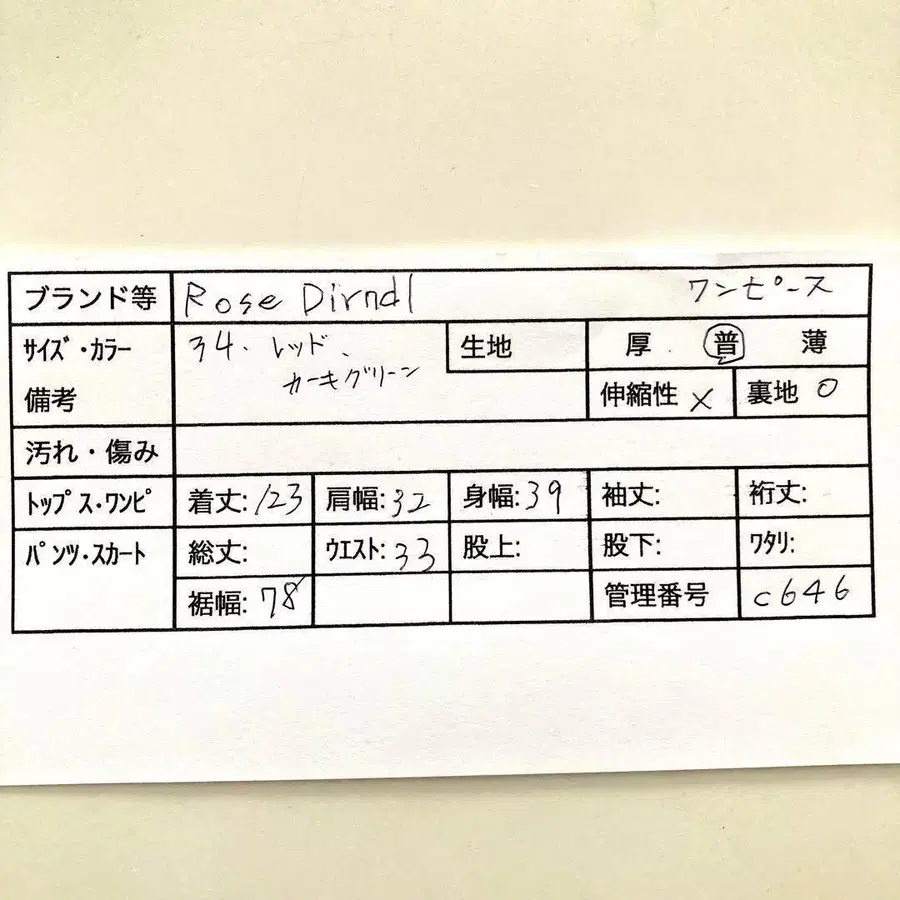 ブランド等 Rose Dirndl ワンピース
サイズ・カラー 34. レッド、 生地 厚 普 薄
備考 カーキグリーン 伸縮性 × 裏地 ○
汚れ・傷み
トップス・ワンピ 着丈:123 肩幅:32 身幅:39 袖丈: 裄丈:
パンツ・スカート 総丈: ウエスト:33 股上: 股下: ワタリ:
裾幅:78 管理番号 c646